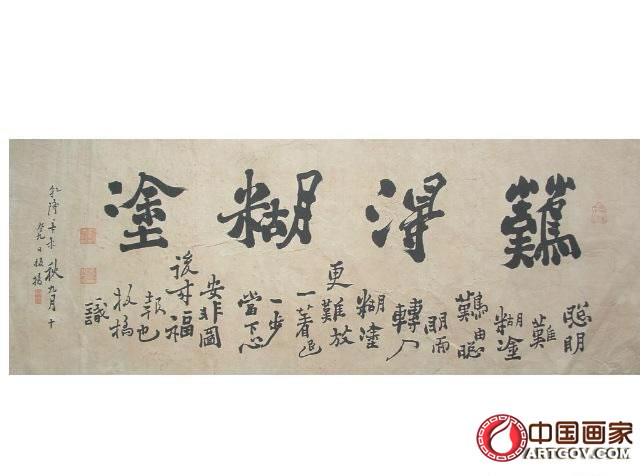 難得糊塗
聰明
難
糊塗
難由聰
明而
轉入
糊塗
更難放
一著退
一步
當下心
安非圖
後來福
報也
板橋
識
乾隆辛未秋九月十
九日板橋
中国画家
ARTGOV.COM